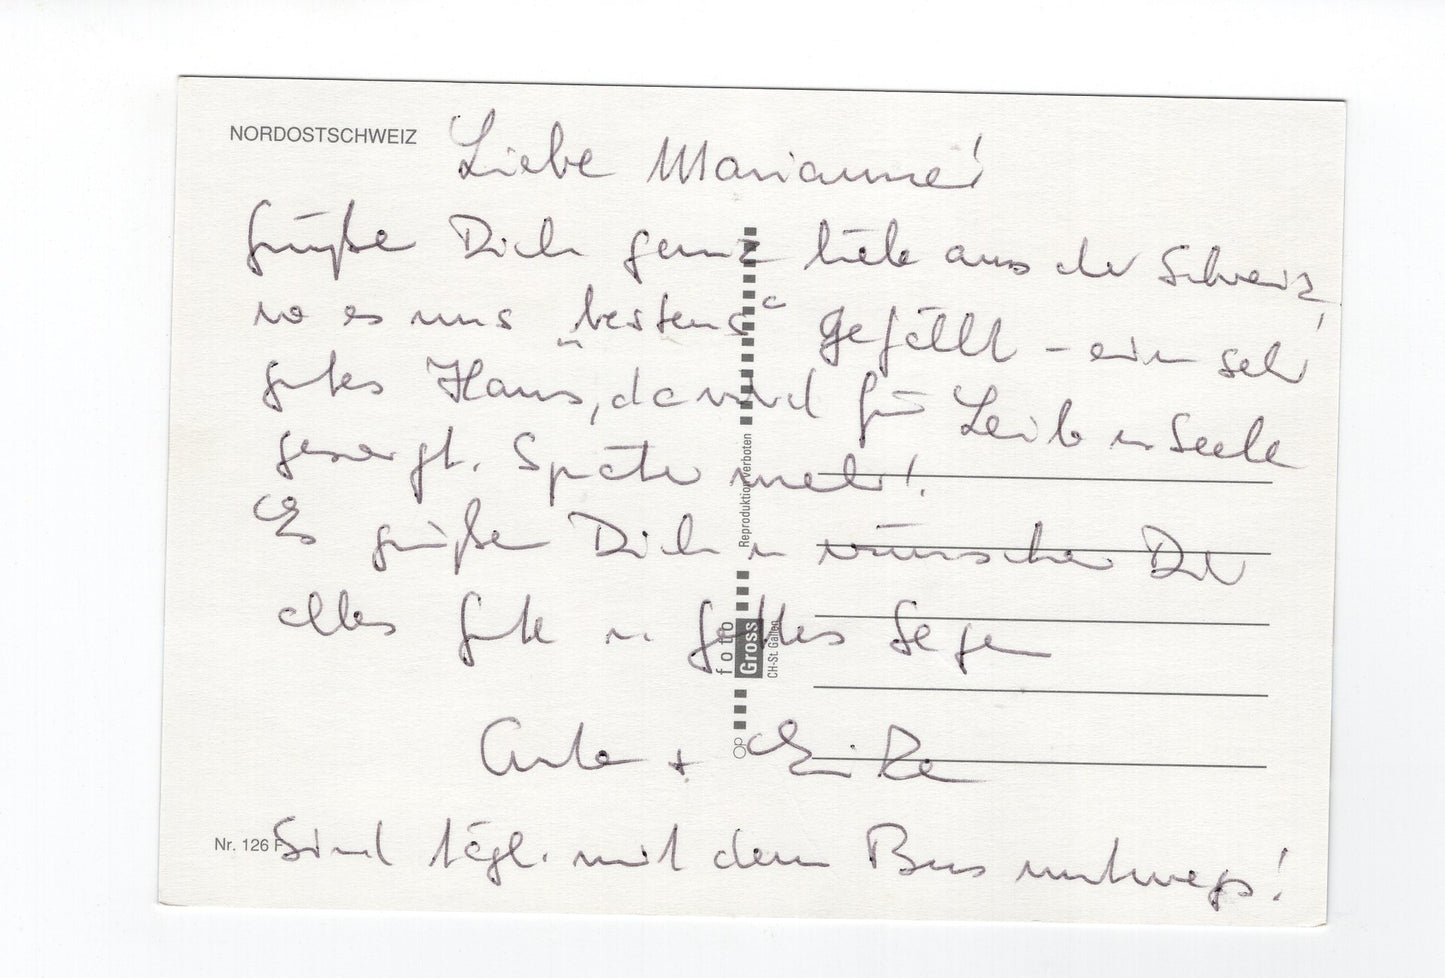 NORDOSTSCHWEIZ
Liebe Marianne!
Grüße Dich ganz lieb aus der Schweiz,
wo es uns „bestens“ gefällt – ein sehr
gutes Haus, da wird für Leib u Seele
gesorgt. Später mehr!
Es grüßen Dich u wünschen Dir
alles Gute u. Gottes Segen
+
Sind tägl. mit dem Bus unterwegs!
Nr. 126 F
Reproduktion verboten
foto
Gross
CH-St. Gallen